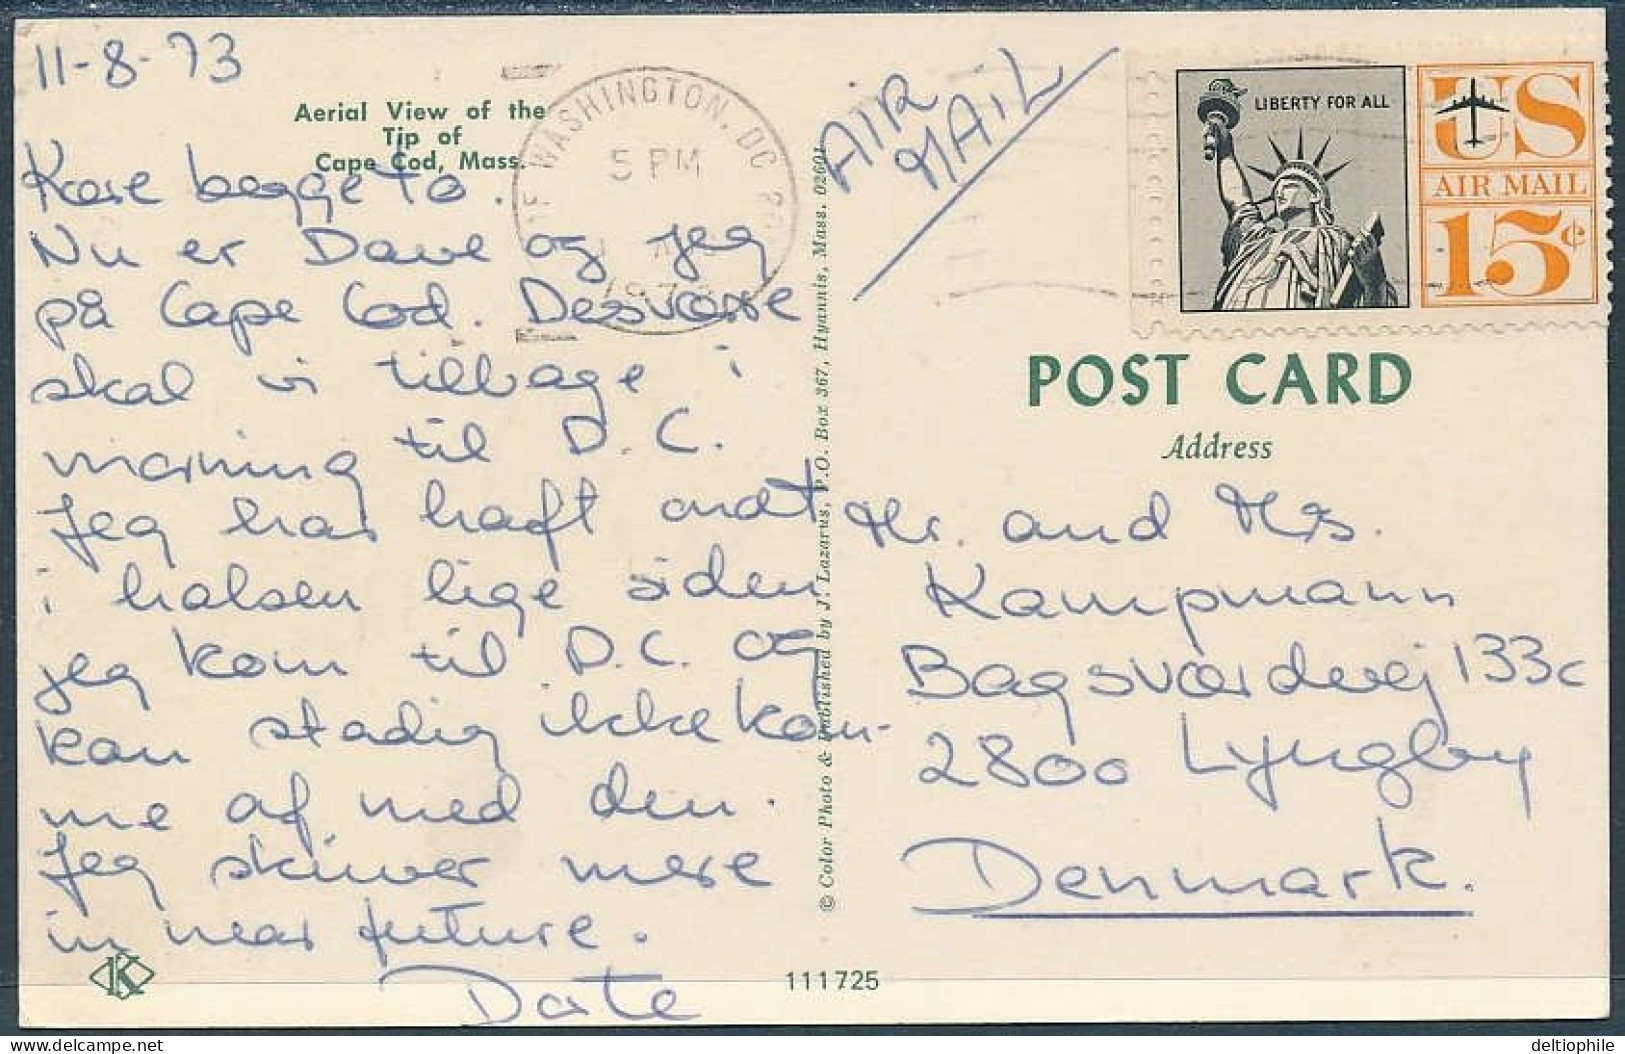 11-8-73
Aerial View of the
Tip of
Cape Cod, Mass.
Kære begge to.
Nu er Dave og jeg
på Cape Cod. Desværre
skal vi tilbage i
morning til D.C.
Jeg har haft ondt
i halsen lige siden
jeg kom til D.C. og
kan stadig ikke kom-
me af med den.
Jeg skriver mere
in near future.
Date
K
WASHINGTON, DC
5 PM
© Color Photo & Published by J. Lazarus, P.O. Box 367, Hyannis, Mass. 02601
111725
AIR
MAIL
LIBERTY FOR ALL
US
AIR MAIL
15¢
POST CARD
Address
Mr. and Mrs.
Kampmann
Bagsværdvej 133c
2800 Lyngby
Denmark.
deltiophile